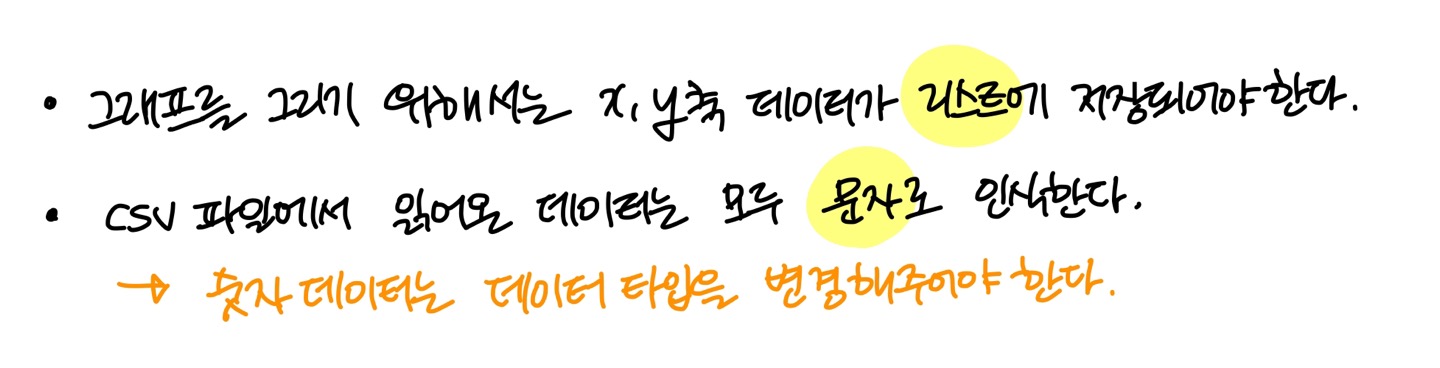 • 그래프를 그리기 위해서는 x, y축 데이터가 리스트에 저장되어야한다.
• CSV 파일에서 읽어온 데이터는 모두 문자로 인식한다.
→ 숫자 데이터는 데이터 타입을 변경해주어야 한다.